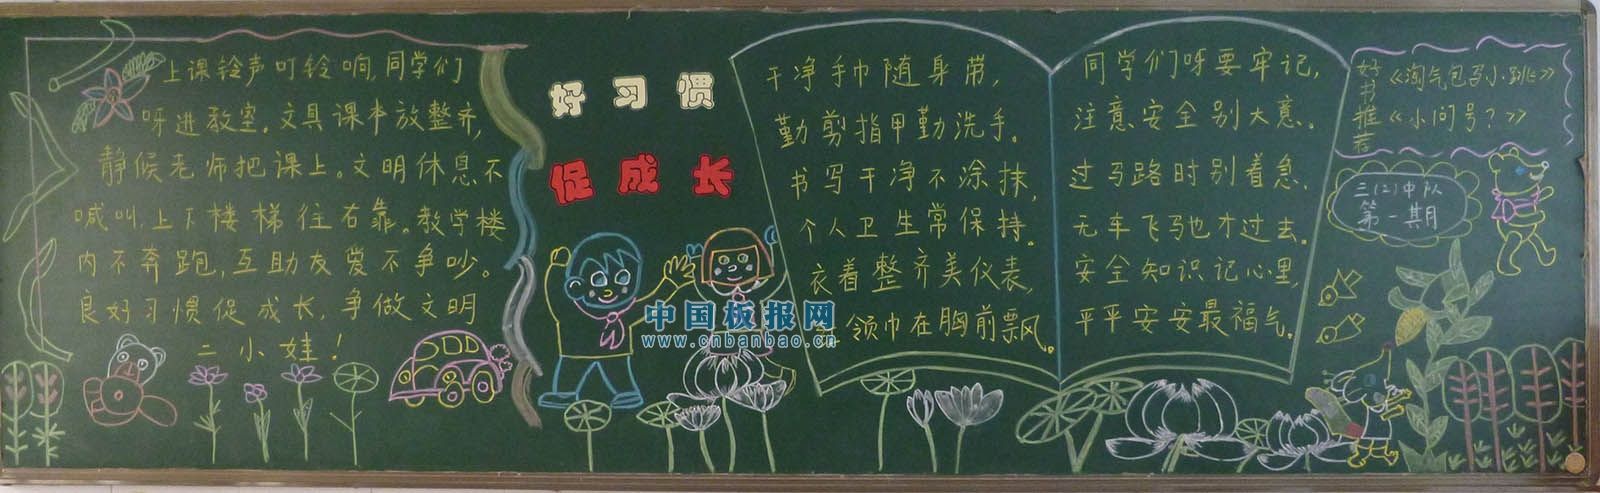 上课铃声叮铃响,同学们
呀进教室。文具课本放整齐,
静候老师把课上。文明休息不
喊叫,上下楼梯往右靠。教学楼
内不奔跑,互助友爱不争吵。
良好习惯促成长,争做文明
二小娃!
好习惯
促成长
干净手巾随身带,
勤剪指甲勤洗手。
书写干净不涂抹,
个人卫生常保持。
衣着整齐美仪表,
领巾在胸前飘。
同学们呀要牢记,
注意安全别大意。
过马路时别着急,
无车飞驰才过去。
安全知识记心里,
平平安安最福气。
好书推荐
《淘气包马小跳》
《小问号?》
三(2)中队
第一期
中国板报网
www.cnbanbao.cn